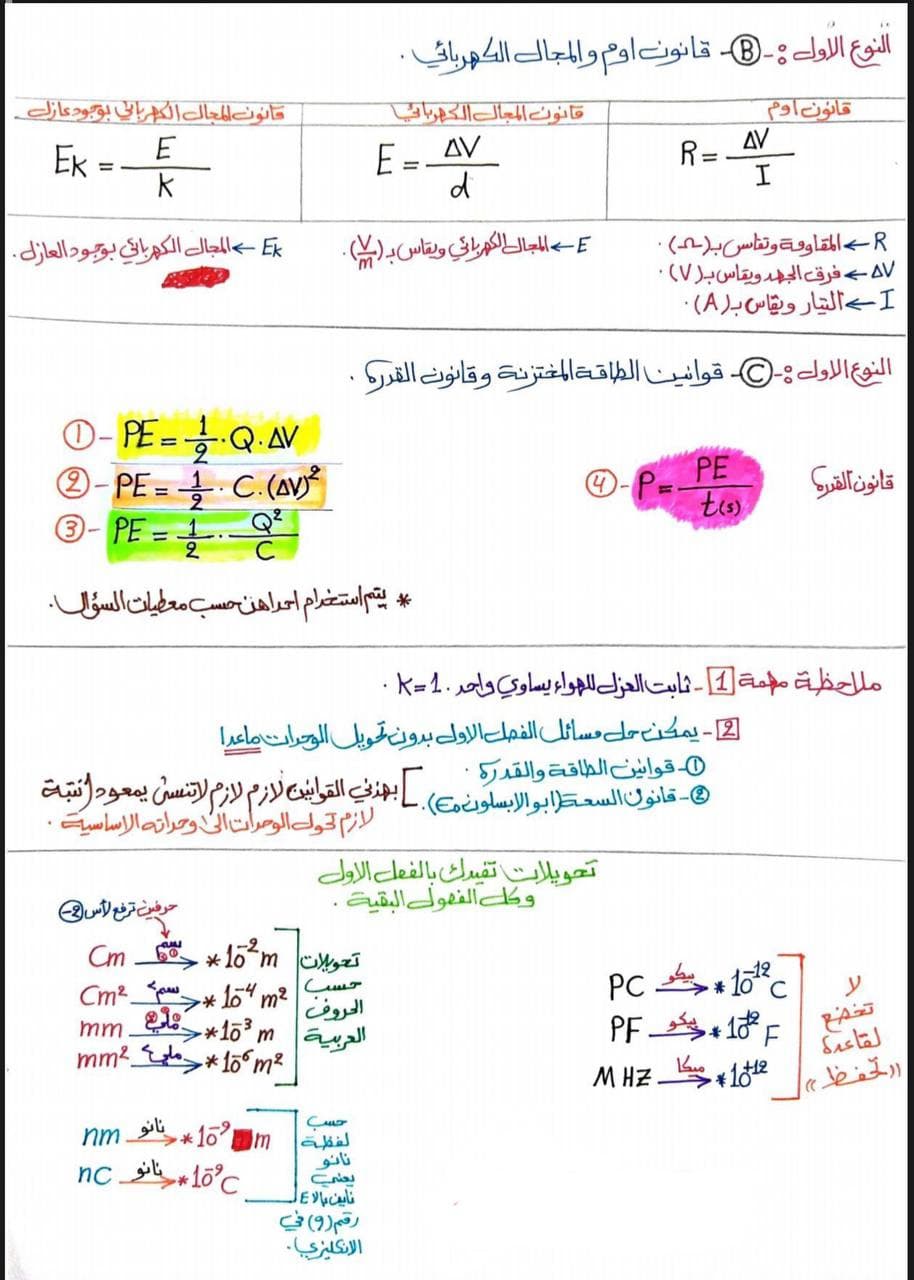 النوع الاول :- Ⓑ- قانون اوم والمجال الكهربائي .
قانون اوم
R = ΔV / I
قانون المجال الكهربائي
E = ΔV / d
قانون المجال الكهربائي بوجود عازل
Ek = E / k
R ← المقاومة وتقاس بـ (Ω) .
ΔV ← فرق الجهد ويقاس بـ (V)
I ← التيار ويقاس بـ (A) .
E ← المجال الكهربائي ويقاس بـ (V/m) .
Ek ← المجال الكهربائي بوجود العازل .
النوع الاول :- Ⓒ- قوانين الطاقة المختزنة وقانون القدرة .
①- PE = 1/2 . Q . ΔV
②- PE = 1/2 . C . (ΔV)²
③- PE = 1/2 . Q²/C
قانون القدرة
④- P = PE / t(s)
* يتم استخدام احداهن حسب معطيات السؤال .
ملاحظة مهمة 1 - ثابت العزل للهواء يساوي واحد . k=1 .
2 - يمكن حل مسائل الفصل الاول بدون تحويل الوحدات ماعدا
①- قوانين الطاقة والقدرة .
②- قانون السعة (ابو الابسلون ∈₀) .
بهذني القوانين لازم لازم لاتنسى يمعود انتبة
لازم تحول الوحدات الى وحداته الاساسية .
تحويلات تفيدك بالفصل الاول
وكل الفصول البقية .
حرفين ترفع لأس -2
Cm سم → *10⁻² m
Cm² سم² → *10⁻⁴ m²
mm ملي → *10⁻³ m
mm² ملي² → *10⁻⁶ m²
تحويلات
حسب
الحروف
العربية
PC بيكو → *10⁻¹² C
PF بيكو → *10⁻¹² F
MHZ ميكا → *10⁺¹²
لا
تخضع
لقاعدة
((تحفظ))
nm نانو → *10⁻⁹ m
nC نانو → *10⁻⁹ C
حسب
لفظة
نانو
يعني
ناين بالـ E
رقم (9) في
الانكليزي .